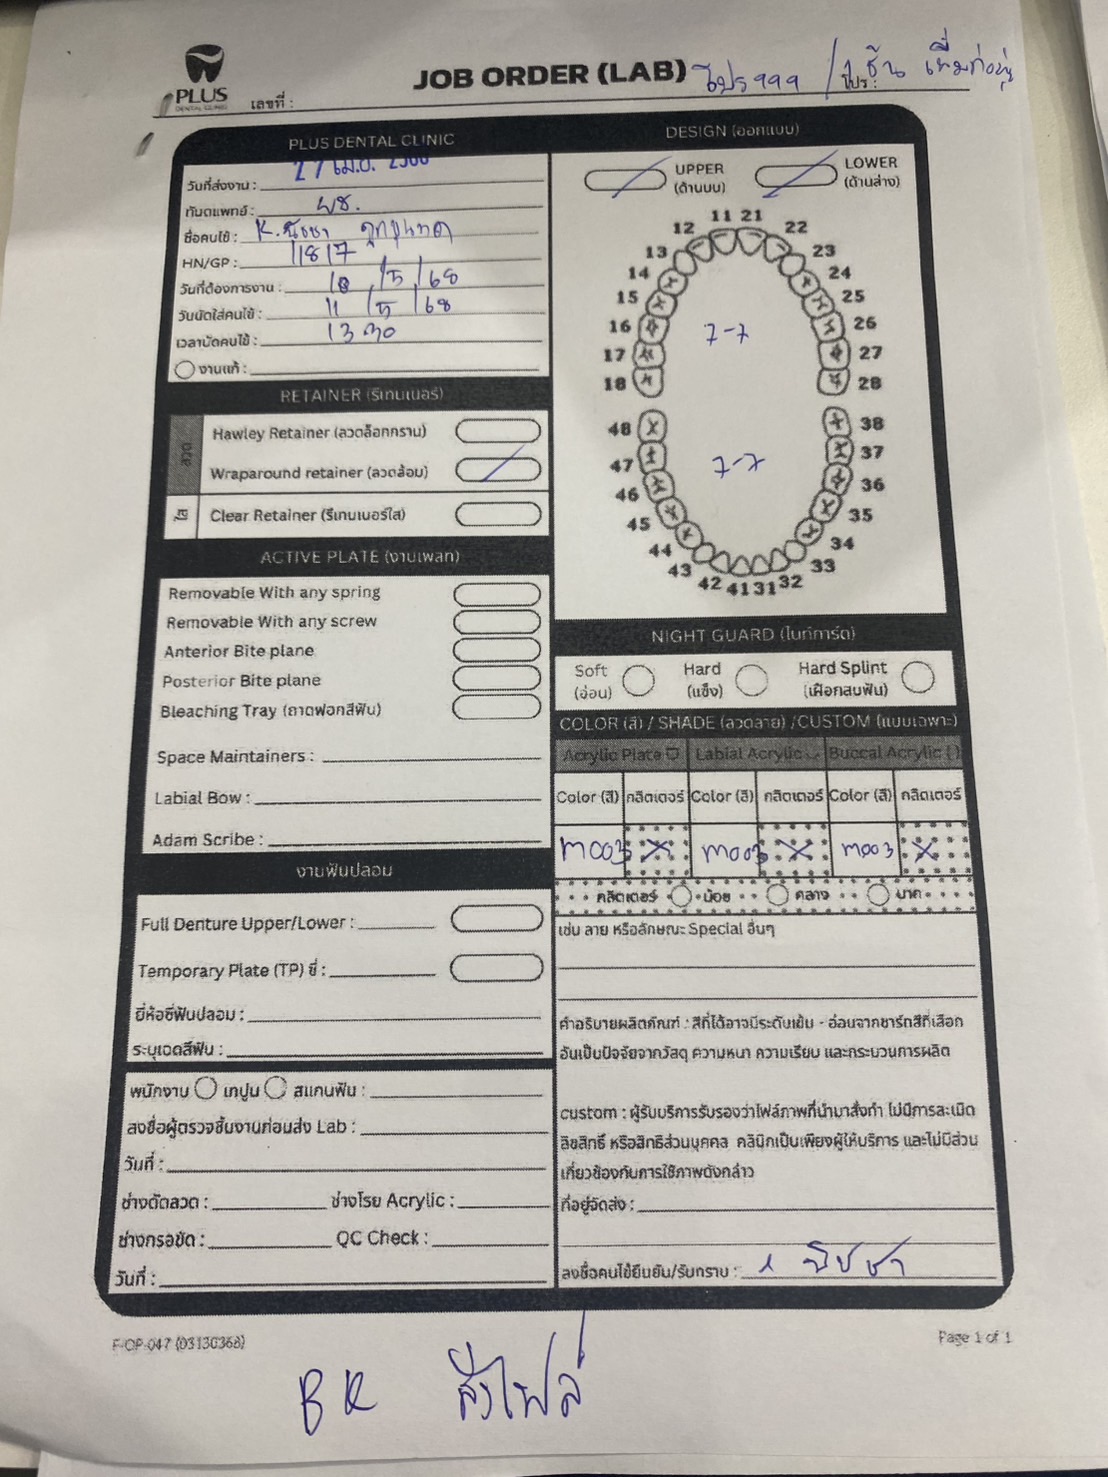 PLUS
DENTAL CLINIC
เลขที่ :
JOB ORDER (LAB) โปร 999 / 1 ชิ้น
โปร :
PLUS DENTAL CLINIC
วันที่ส่งงาน : 27 เม.ย. 2568
ทันตแพทย์ : ผช.
ชื่อคนไข้ : K.
HN/GP : 11817
วันที่ต้องการงาน : 10 / 5 / 68
วันนัดใส่คนไข้ : 11 / 5 / 68
เวลานัดคนไข้ : 13 30
งานแก้ :
RETAINER (รีเทนเนอร์)
ลวด
Hawley Retainer (ลวดล็อกกราม)
Wraparound retainer (ลวดล้อม)
ใส
Clear Retainer (รีเทนเนอร์ใส)
ACTIVE PLATE (งานเพลท)
Removable With any spring
Removable With any screw
Anterior Bite plane
Posterior Bite plane
Bleaching Tray (ถาดฟอกสีฟัน)
Space Maintainers :
Labial Bow :
Adam Scribe :
งานฟันปลอม
Full Denture Upper/Lower :
Temporary Plate (TP) ซี่ :
ยี่ห้อซี่ฟันปลอม :
ระบุเฉดสีฟัน :
พนักงาน เทปูน สแกนฟัน :
ลงชื่อผู้ตรวจชิ้นงานก่อนส่ง Lab :
วันที่ :
ช่างดัดลวด : ช่างโรย Acrylic :
ช่างกรอขัด : QC Check :
วันที่ :
DESIGN (ออกแบบ)
UPPER
(ด้านบน)
LOWER
(ด้านล่าง)
11 21
12 22
13 23
14 24
15 25
16 7-7 26
17 27
18 28
48 38
47 7-7 37
46 36
45 35
44 34
43 33
42 41 31 32
NIGHT GUARD (ไนท์การ์ด)
Soft
(อ่อน)
Hard
(แข็ง)
Hard Splint
(เฝือกสบฟัน)
COLOR (สี) / SHADE (ลวดลาย) /CUSTOM (แบบเฉพาะ)
Acrylic Plate Labial Acrylic Buccal Acrylic ( )
Color (สี) กลิตเตอร์ Color (สี) กลิตเตอร์ Color (สี) กลิตเตอร์
m003 X m003 X m003 X
กลิตเตอร์ น้อย กลาง มาก
เช่น ลาย หรือลักษณะ Special อื่นๆ
คำอธิบายผลิตภัณฑ์ : สีที่ได้อาจมีระดับเข้ม - อ่อนจากชาร์ทสีที่เลือก
อันเป็นปัจจัยจากวัสดุ ความหนา ความเรียบ และกระบวนการผลิต
custom : ผู้รับบริการรับรองว่าไฟล์ภาพที่นำมาสั่งทำ ไม่มีการละเมิด
ลิขสิทธิ์ หรือสิทธิส่วนบุคคล คลินิกเป็นเพียงผู้ให้บริการ และไม่มีส่วน
เกี่ยวข้องกับการใช้ภาพดังกล่าว
ที่อยู่จัดส่ง :
ลงชื่อคนไข้ยืนยัน/รับทราบ :
F-OP-047 (03130368)
Page 1 of 1
BR ส่งไฟล์